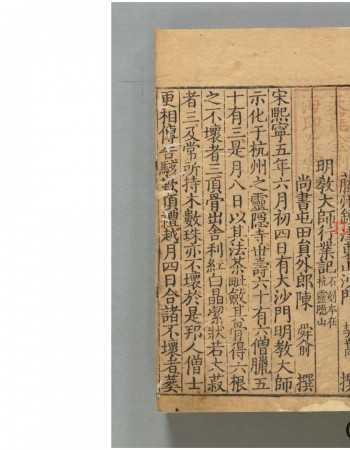 藤州鐔津東山沙門 契嵩 撰
明教大師行業記 石刻本在杭靈隱山
尚書屯田員外郎陳 舜俞 撰
宋熙寧五年六月初四日有大沙門明教大師
示化于杭州之靈隱寺世壽六十有六僧臘五
十有三是月八日以其法茶毗斂其骨得六根
之不壞者三頂骨出舍利紅白晶潔狀若大菽
者三及常所持木數珠亦不壞於是邦人僧士
更相傳告駭歎頂禮越月四日合諸不壞者葬